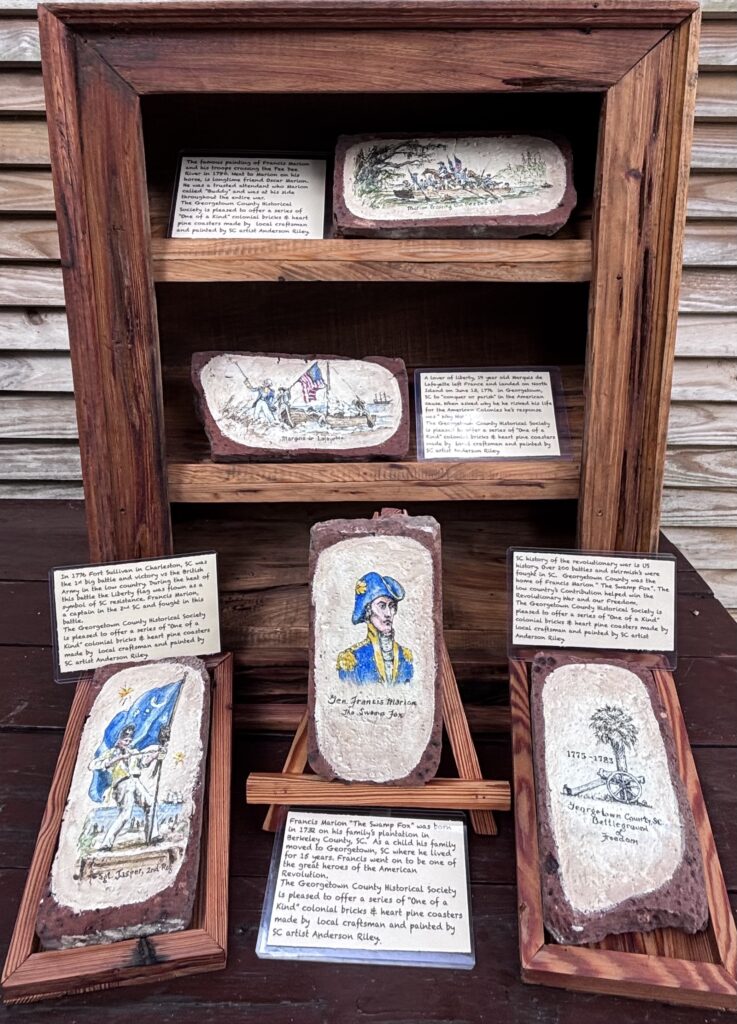 The famous painting of Francis Marion
and his troops crossing the Pee Dee
River in 1780. Next to Marion on his
horse, is longtime friend Oscar Marion.
He was a trusted attendent who Marion
called "Buddy" and was at his side
throughout the entire war.
The Georgetown County Historical
Society is pleased to offer a series of
"One of a Kind" colonial bricks & heart
pine coasters made by local craftsman
and painted by SC artist Anderson Riley.
Marion Crossing
Marquis de Lafayette
A lover of liberty, 19 year old Marquis de
Lafayette left France and landed on North
Island on June 13, 1776 in Georgetown,
SC to "conquer or perish" in the American
cause. When asked why he risked his life
for the American Colonies he's response
was " Why Not
The Georgetown County Historical Society
is pleased to offer a series of "One of a
Kind" colonial bricks & heart pine coasters
made by local craftsman and painted by
SC artist Anderson Riley.
In 1776 Fort Sullivan in Charleston, SC was
the 1st big battle and victory vs the British
Army in the low country. During the heat of
this battle the Liberty flag was flown as a
symbol of SC resistance. Francis Marion,
a captain in the 2nd SC and fought in this
battle.
The Georgetown County Historical Society
is pleased to offer a series of "One of a
Kind" colonial bricks & heart pine coasters
made by local craftsman and painted by
SC artist Anderson Riley.
SC history of the revolutionary war is US
history. Over 200 battles and skirmish's were
fought in SC. Georgetown County was the
home of Francis Marion " The Swamp Fox". The
low country's Contribution helped win the
Revolutionary War and our Freedom.
The Georgetown County Historical Society is
pleased to offer a series of "One of a Kind"
colonial bricks & heart pine coasters made by
local craftsman and painted by SC artist
Anderson Riley.
Gen. Francis Marion
The Swamp Fox
Sgt. Jasper, 2nd Reg
1775-1783
Georgetown County, SC
Battleground
of
Freedom
Francis Marion "The Swamp Fox" was born
in 1732 on his family's plantation in
Berkeley County, SC. As a child his family
moved to Georgetown, SC where he lived
for 15 years. Francis went on to be one of
the great heroes of the American
Revolution.
The Georgetown County Historical Society
is pleased to offer a series of "One of a
Kind" colonial bricks & heart pine coasters
made by local craftsman and painted by
SC artist Anderson Riley.